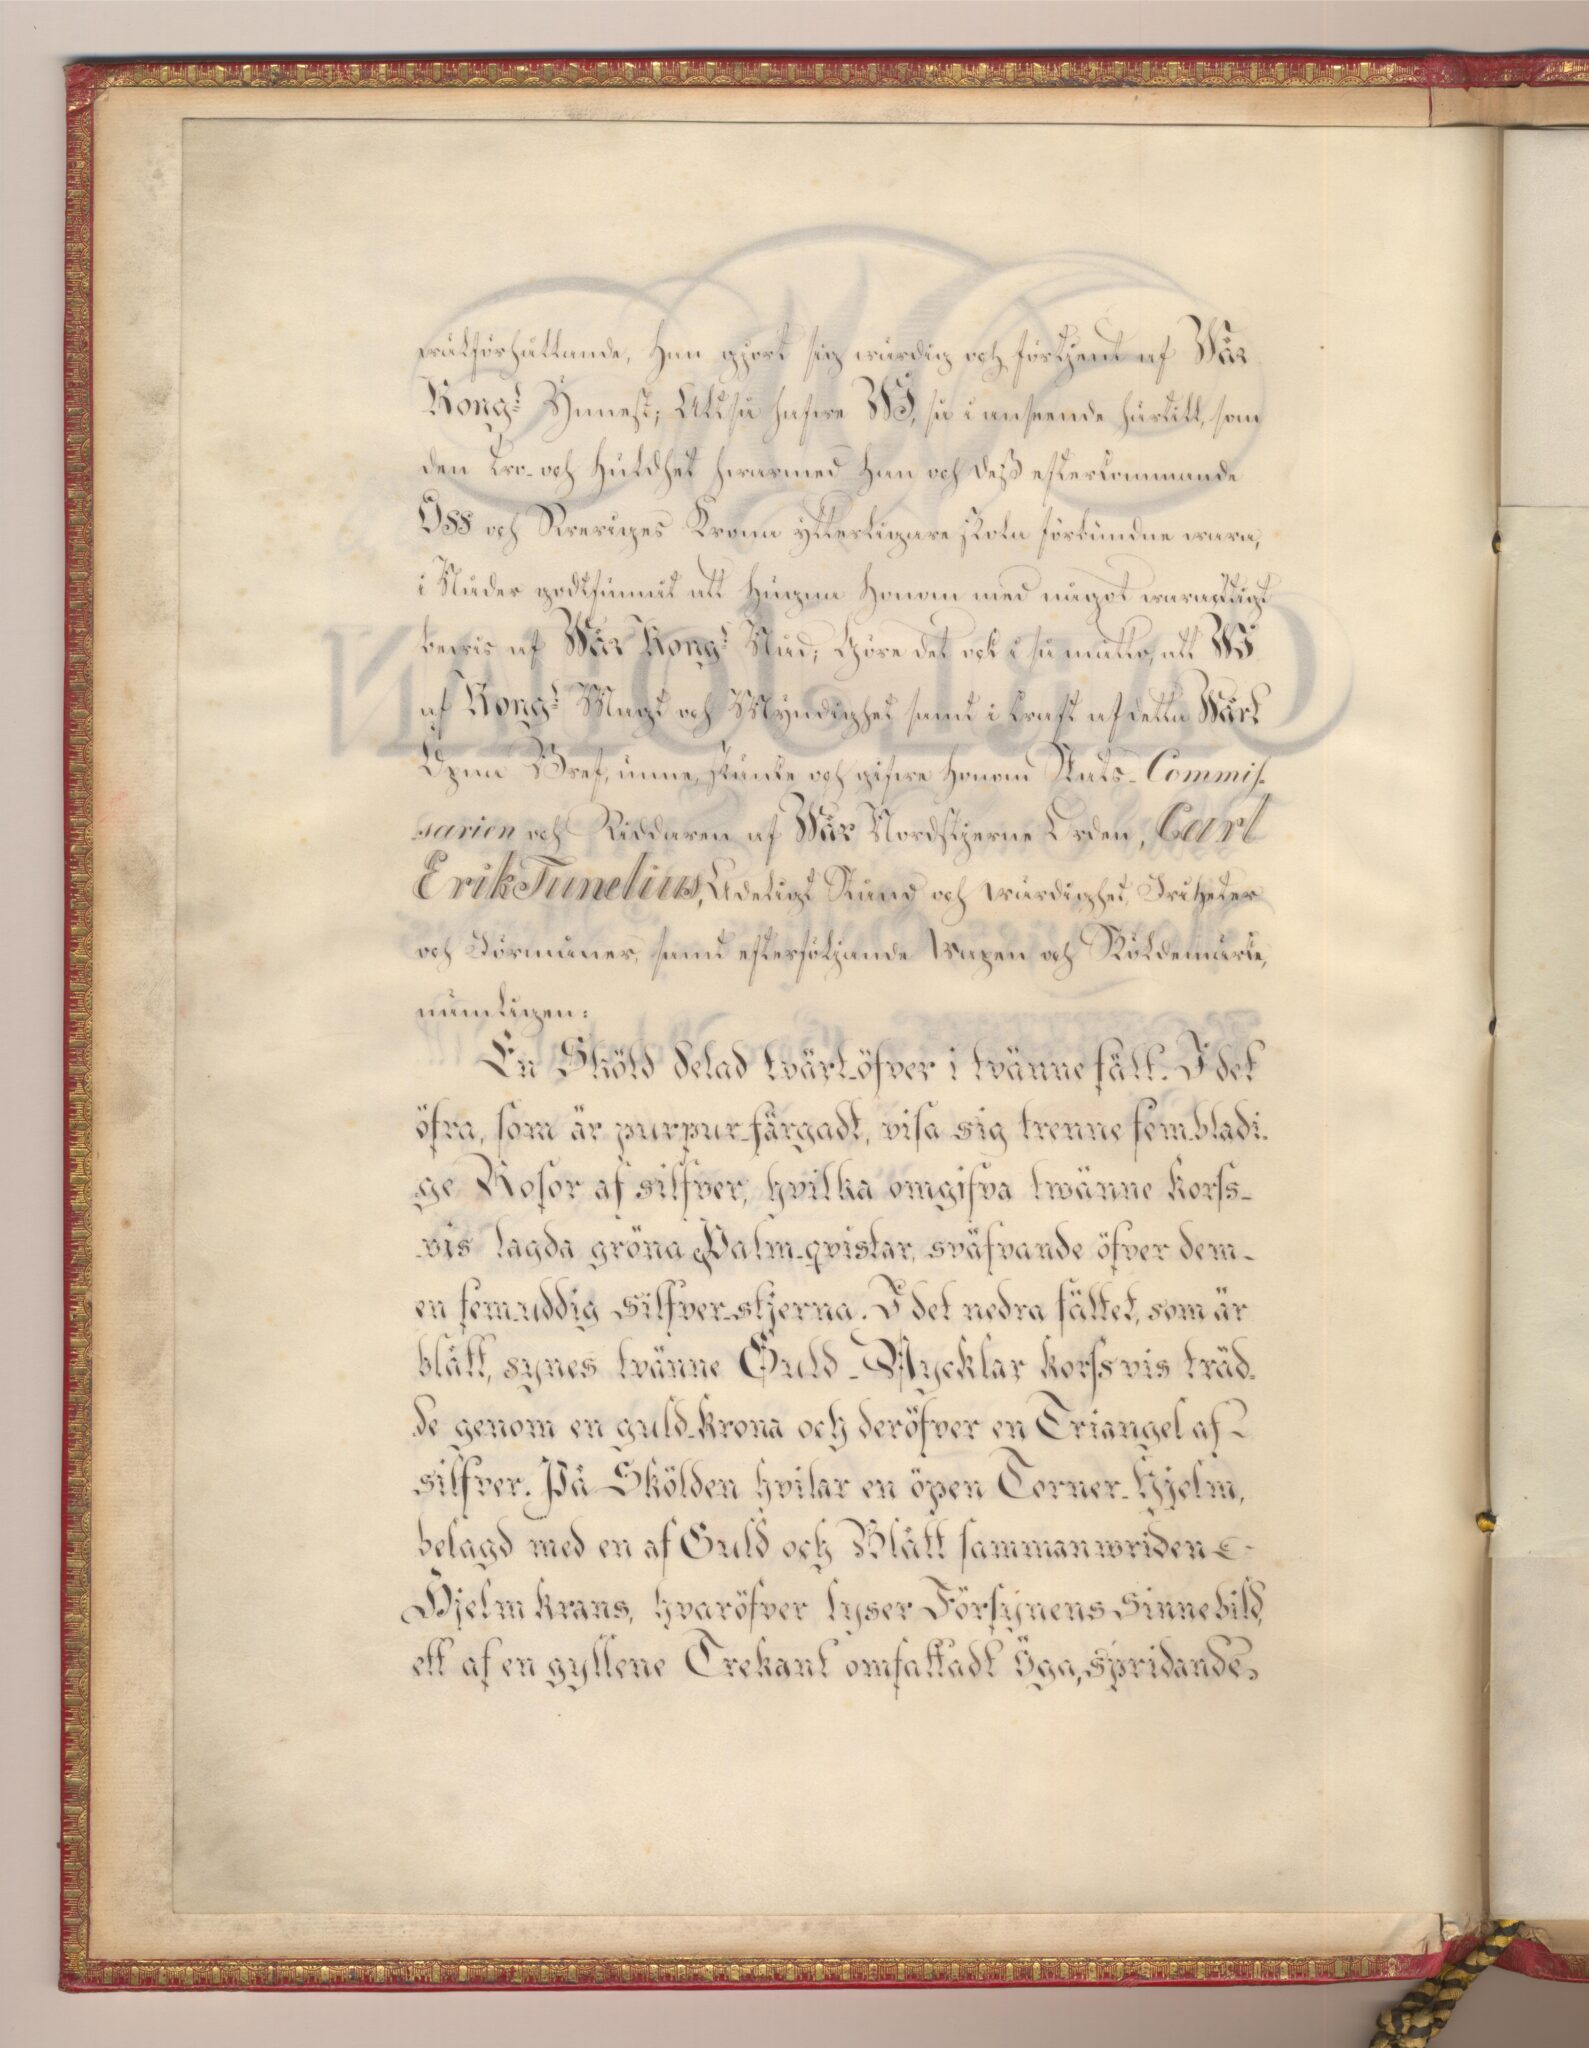 wälförhållande, Han gjort sig wärdig och förtjent af Wår
Kongl. Ynnest; Altså hafwe WJ, så i anseende härtill, som
den tro- och huldhet hwarmed Han och Deß efterkommande
Oss och Sweriges Krona ytterligare skola förbundne wara,
i Nåder godtfunnit att hugna Honom med något waraktigt
bewis af Wår Kongl. Nåd; Göre det ock i så matto, att WJ
af Kongl. Magt och Myndighet samt i kraft af detta Wårt
Öpna Bref, unne, skänke och gifwe Honom Stats-Commis-
sarien och Riddaren af Wår Nordstjerne Orden, Carl
Erik Tunelius, Adeligt Stånd och wärdighet, Friheter
och Förmåner, samt efterföljande Wapen och Sköldemärke,
nämligen:
En Sköld delad tvärt-öfver i tvänne fält. I det
öfra, som är purpur-färgadt, visa sig trenne fem-bladi-
ge Rosor af silfver, hvilka omgifva twänne korss-
vis lagda gröna Palm-qvistar, sväfvande öfver dem-
en fem-uddig silfver-stjerna. I det nedra fältet, som är
blått, synes tvänne Guld-Nycklar korssvis träd-
de genom en guld-krona och deröfver en Triangel af
silfver. På Skölden hvilar en öpen Torner-hjelm,
belagd med en af Guld och Blått sammanwriden
Hjelmkrans, hvaröfver lyser Försynens Sinnebild,
ett af en gyllene Trekant omfattadt Öga, spridande